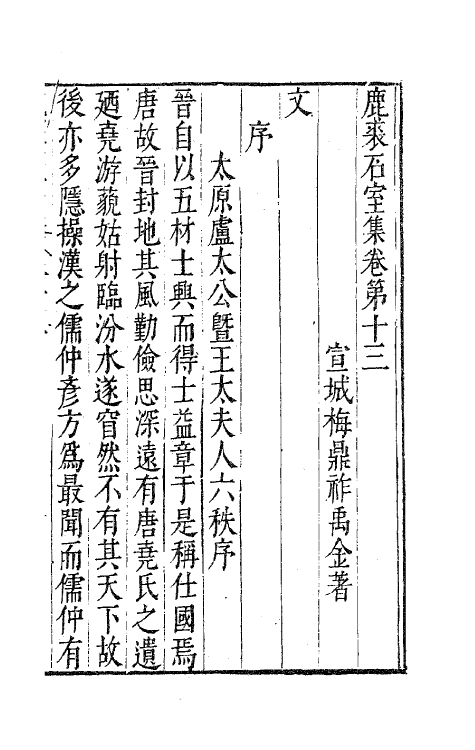 鹿裘石室集卷第十三
宣城梅鼎祚禹金著
文
序
太原盧太公暨王太夫人六秩序
晉自以五材士興而得士益章于是稱仕國焉
唐故晉封地其風勤儉思深遠有唐堯氏之遺
廼堯游藐姑射臨汾水遂窅然不有其天下故
後亦多隱操漢之儒仲彥方為最聞而儒仲有